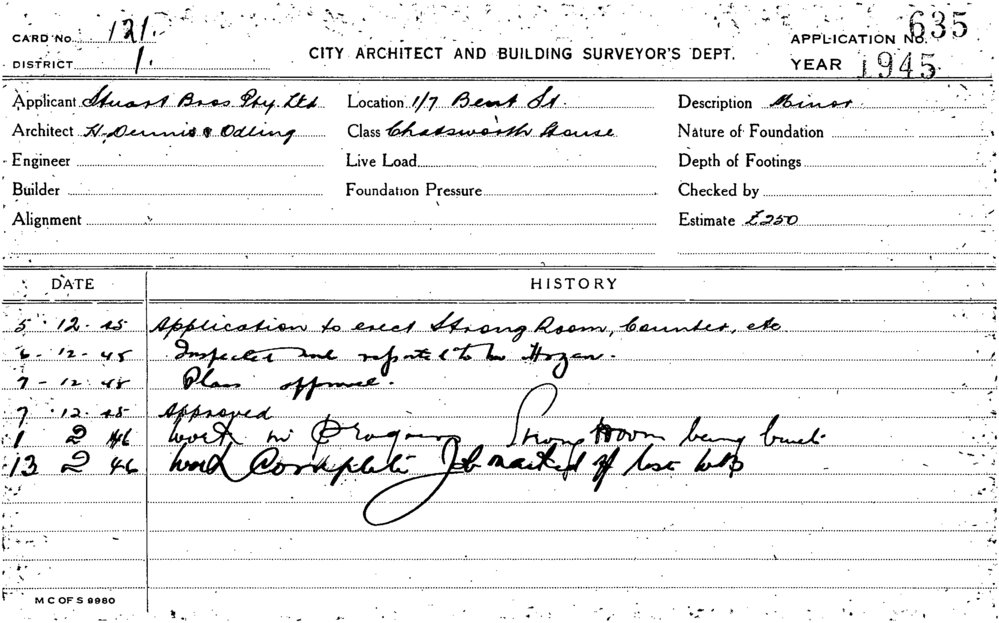 CARD No. 121.
DISTRICT 1.
CITY ARCHITECT AND BUILDING SURVEYOR'S DEPT.
APPLICATION No. 635
YEAR 1945
Applicant Stuart Bros Pty. Ltd Location 1/7 Bent St. Description Minor
Architect H. Dennis & Odling Class Chatsworth House Nature of Foundation
Engineer Live Load Depth of Footings
Builder Foundation Pressure Checked by
Alignment Estimate £250
DATE HISTORY
5 . 12 . 45 Application to erect Strong Room, Counter, etc
6 - 12 - 45 Inspected and reported to Mr Hogan.
7 - 12 . 45 Plans
7 . 12 . 45 Approved
1 2 46 Work in Progress Strong Room being built
13 2 46 Work Complete Job marked off
M C OF S 9980